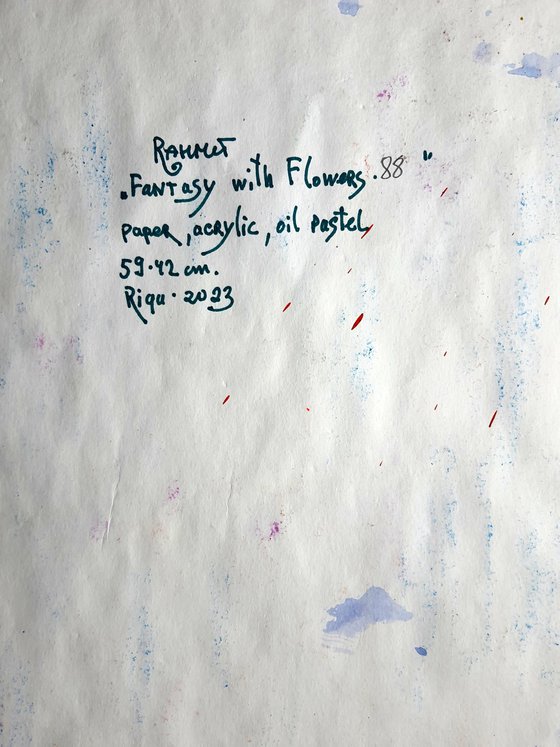 RAHMET
„Fantasy with Flowers.88"
paper, acrylic, oil pastel
59.42 cm.
Riga. 2023